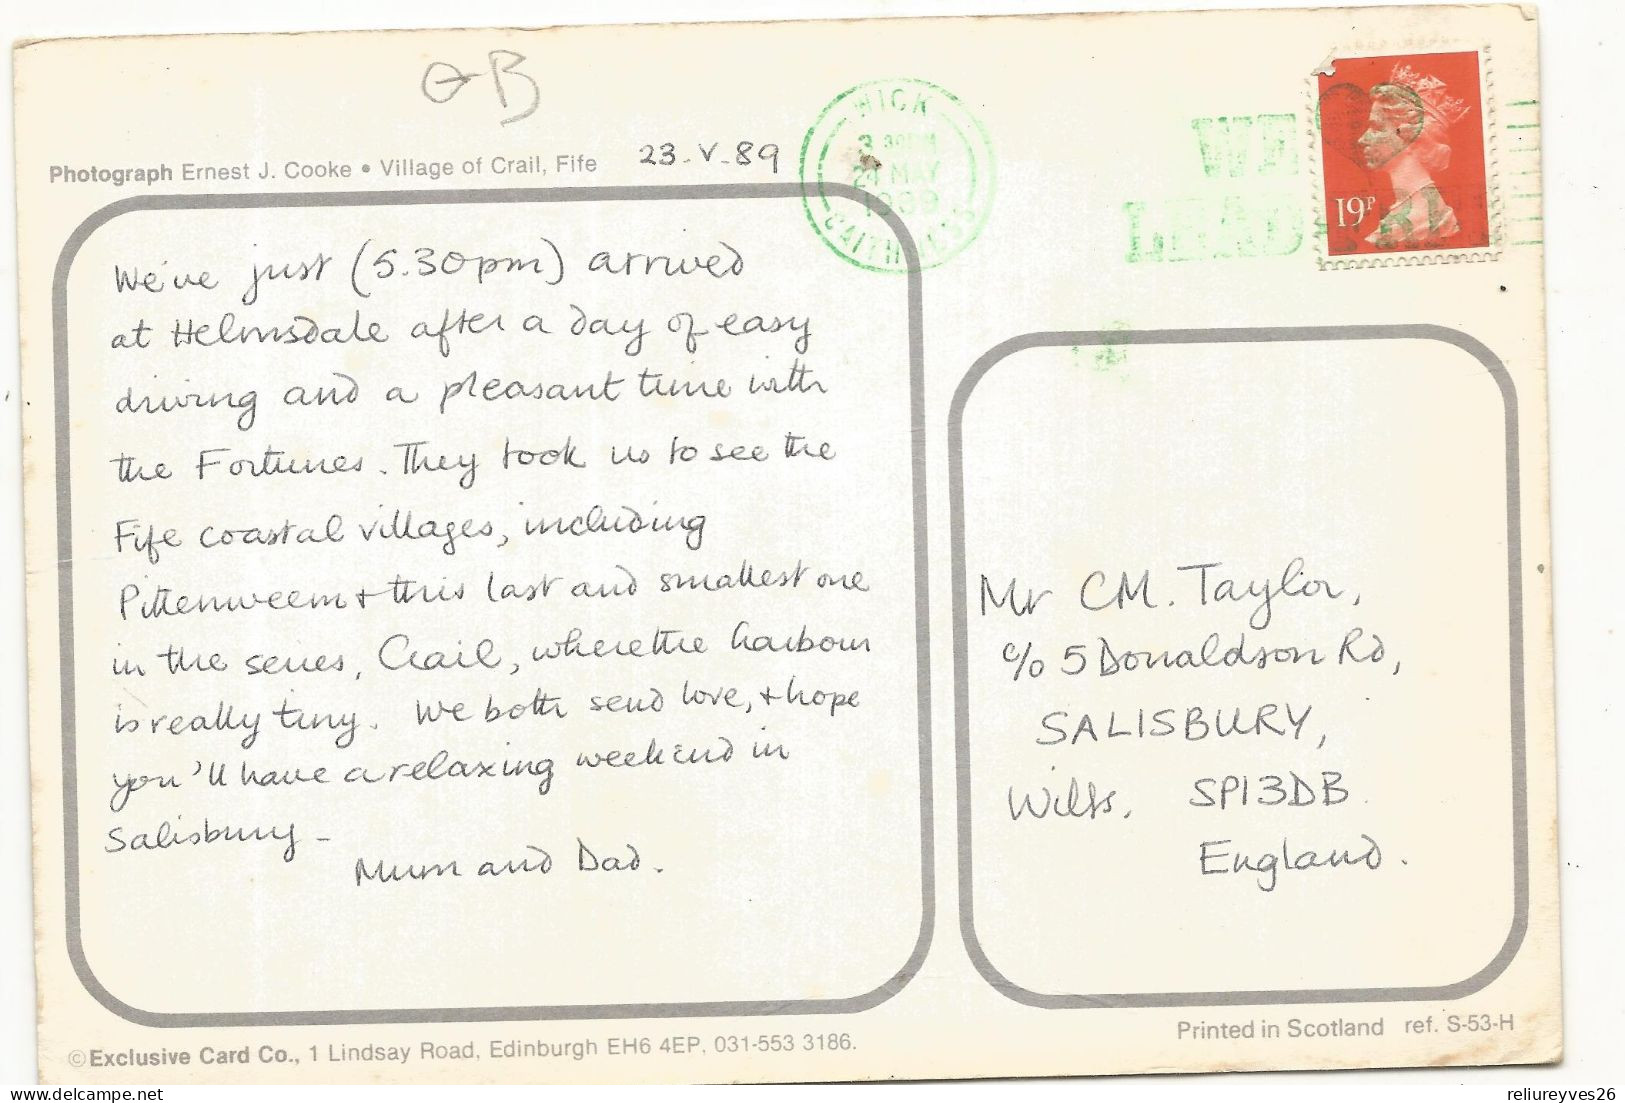 GB
Photograph Ernest J. Cooke • Village of Crail, Fife
23-V-89
WICK
3 30PM
24 MAY
1989
CAITHNESS
WE
LEAD
19P
We've just (5.30pm) arrived
at Helmsdale after a day of easy
driving and a pleasant time with
the Fortunes. They took us to see the
Fife coastal villages, including
Pittenweem & this last and smallest one
in the series, Crail, where the harbour
is really tiny. We both send love, & hope
you'll have a relaxing weekend in
Salisbury -
Mum and Dad.
Mr CM. Taylor,
c/o 5 Donaldson Rd,
SALISBURY,
Wilts. SP1 3DB
England.
© Exclusive Card Co., 1 Lindsay Road, Edinburgh EH6 4EP, 031-553 3186.
Printed in Scotland ref. S-53-H
reliureyves26